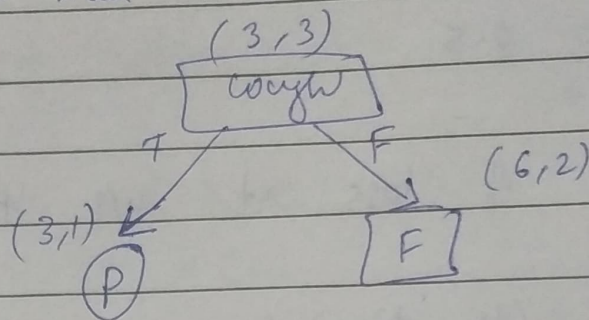 (3,3)
cough
T F
(6,2)
(3,1)
P F